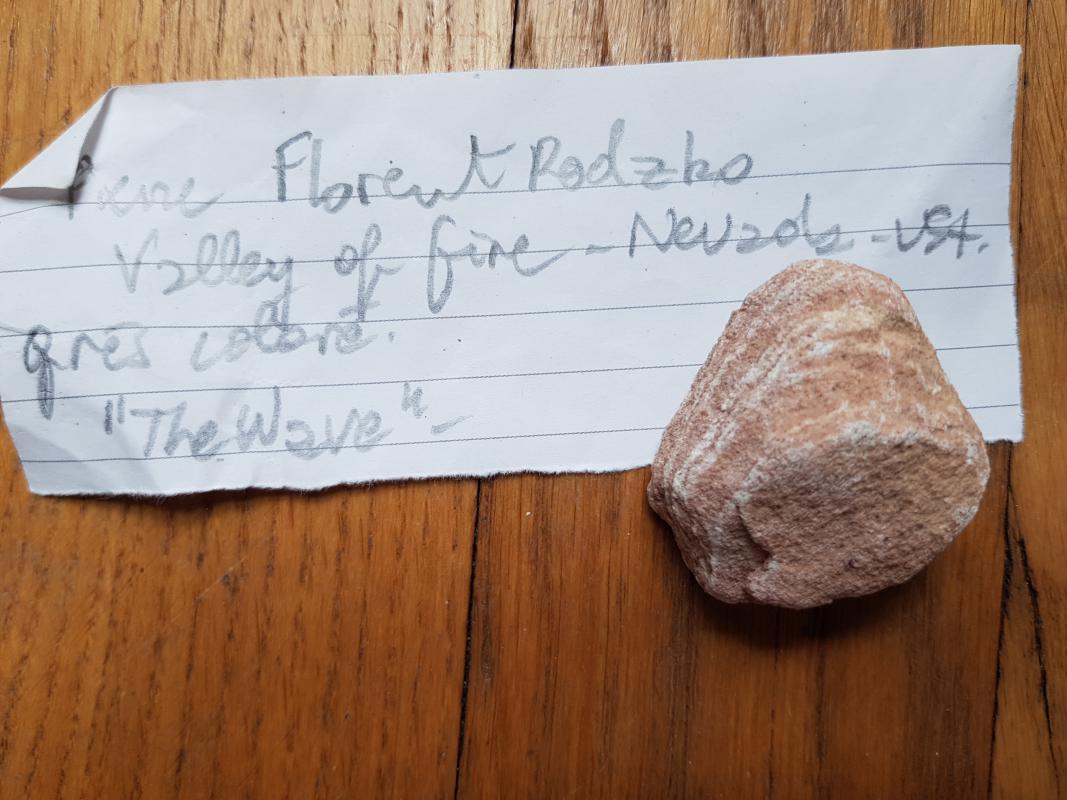 Pierre Florent Rodzko
Valley of fire - Nevada - USA.
grès coloré.
"The Wave" -